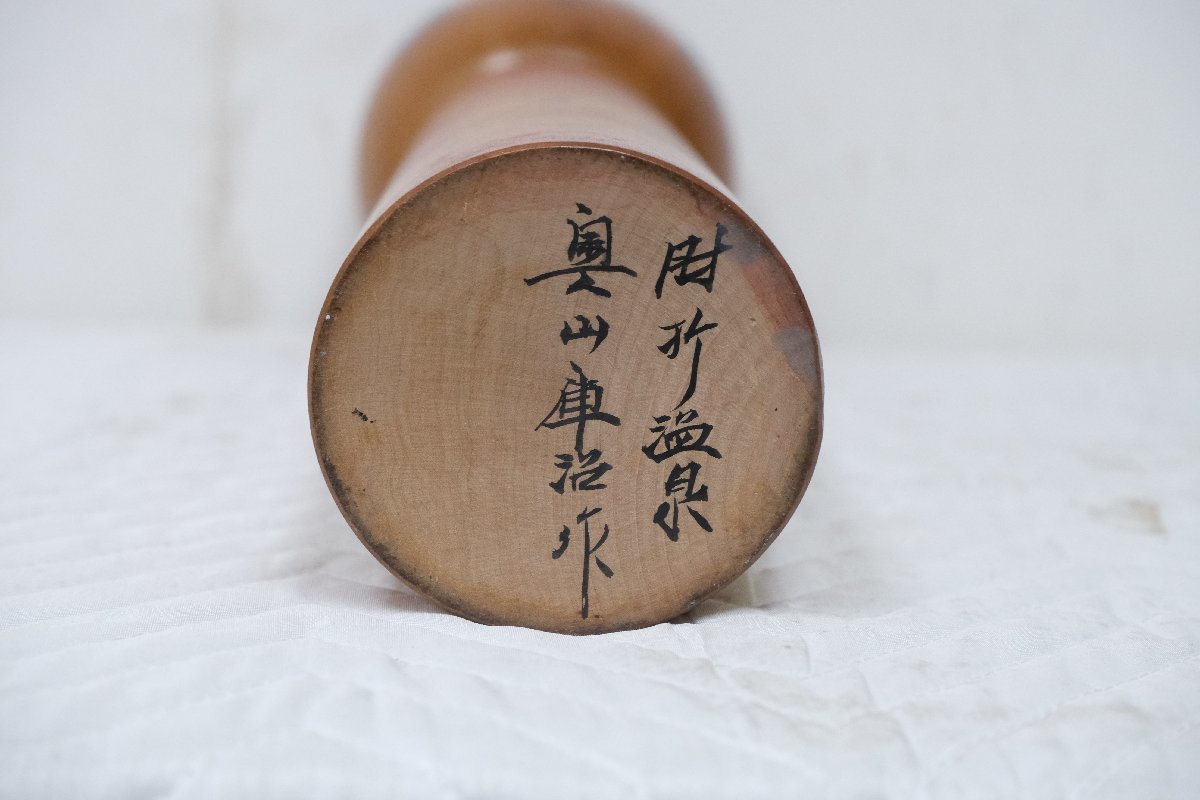 肘折温泉
奥山庫治作